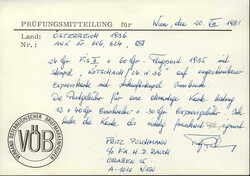 PRÜFUNGSMITTEILUNG für Wien, den 20. XII 1981
Land: ÖSTERREICH 1936
Nr.: ANK Nr 606, 624, ✉
24 Gr. FIS II + 60 Gr. Flugpost 1935 mit
Stempel "KÖTSCHACH 24 IV 36" auf
Expresskarte mit Ankunftstempel Innsbruck
Die Postgebühr für eine Karte betrug
12 + 40 Gr + 30 Gr Expressgebühr. Ich
habe die Karte als richtig frankiert signiert
FRITZ PUSCHMANN
c/o FA. H.D. RAUCH
GRABEN 15
A-1010 WIEN
VERBAND ÖSTERREICHISCHER BRIEFMARKENPRÜFER
VÖB